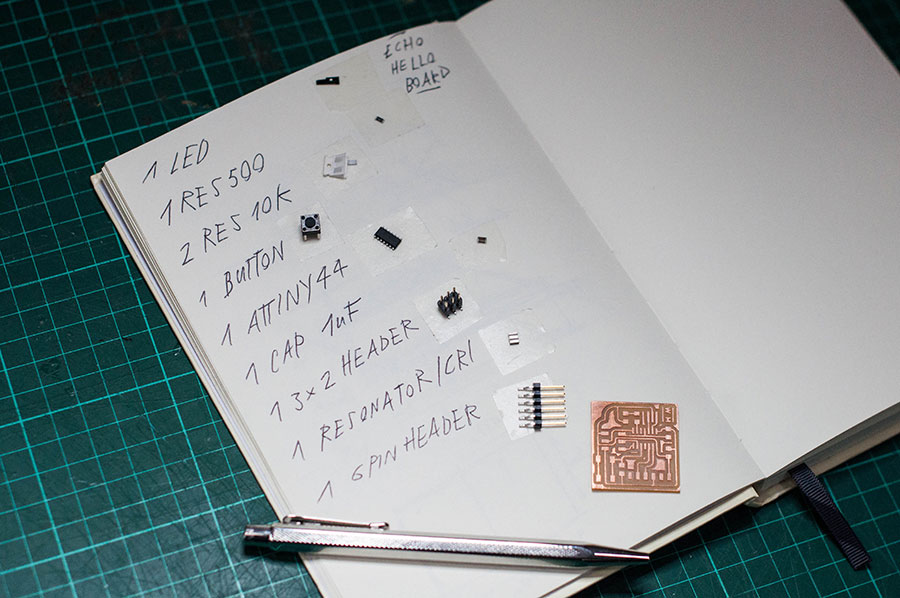 ECHO
HELLO
BOARD
1 LED
1 RES 500
2 RES 10K
1 BUTTON
1 ATTINY44
1 CAP 1uF
1 3x2 HEADER
1 RESONATOR/CRI
1 6PIN HEADER